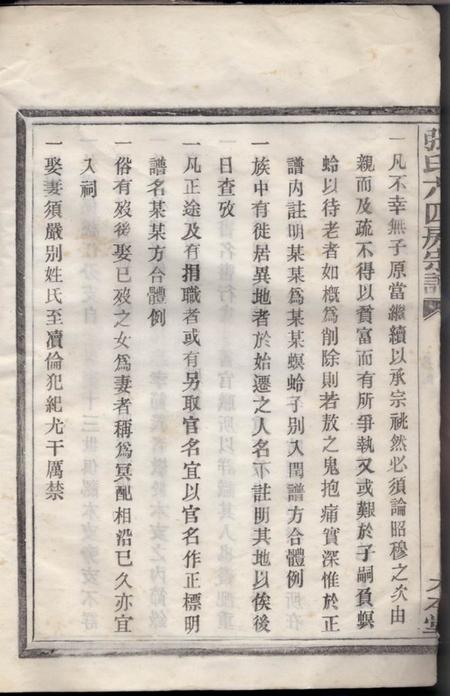 一凡不幸無子原當繼續以承宗祧然必須論昭穆之次由
親而及疏不得以貧富而有所爭執又或艱於子嗣負螟
蛉以待老者如概爲削除則若敖之鬼抱痛實深惟於正
譜內註明某某爲某某螟蛉子別入閏譜方合體例
一族中有徙居異地者於始遷之人名下註明其地以俟後
日查攷
一凡正途及有捐職者或有另取官名宜以官名作正標明
譜名某某方合體例
一俗有歿後娶已歿之女爲妻者稱爲冥配相沿已久亦宜
入祠
一娶妻須嚴別姓氏至瀆倫犯紀尤干厲禁
張氏六四房宗譜